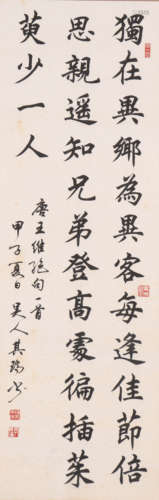 獨在異鄉為異客每逢佳節倍
思親遥知兄弟登髙處徧插茱
萸少一人
唐王維絶句一首
甲子夏日吴人其